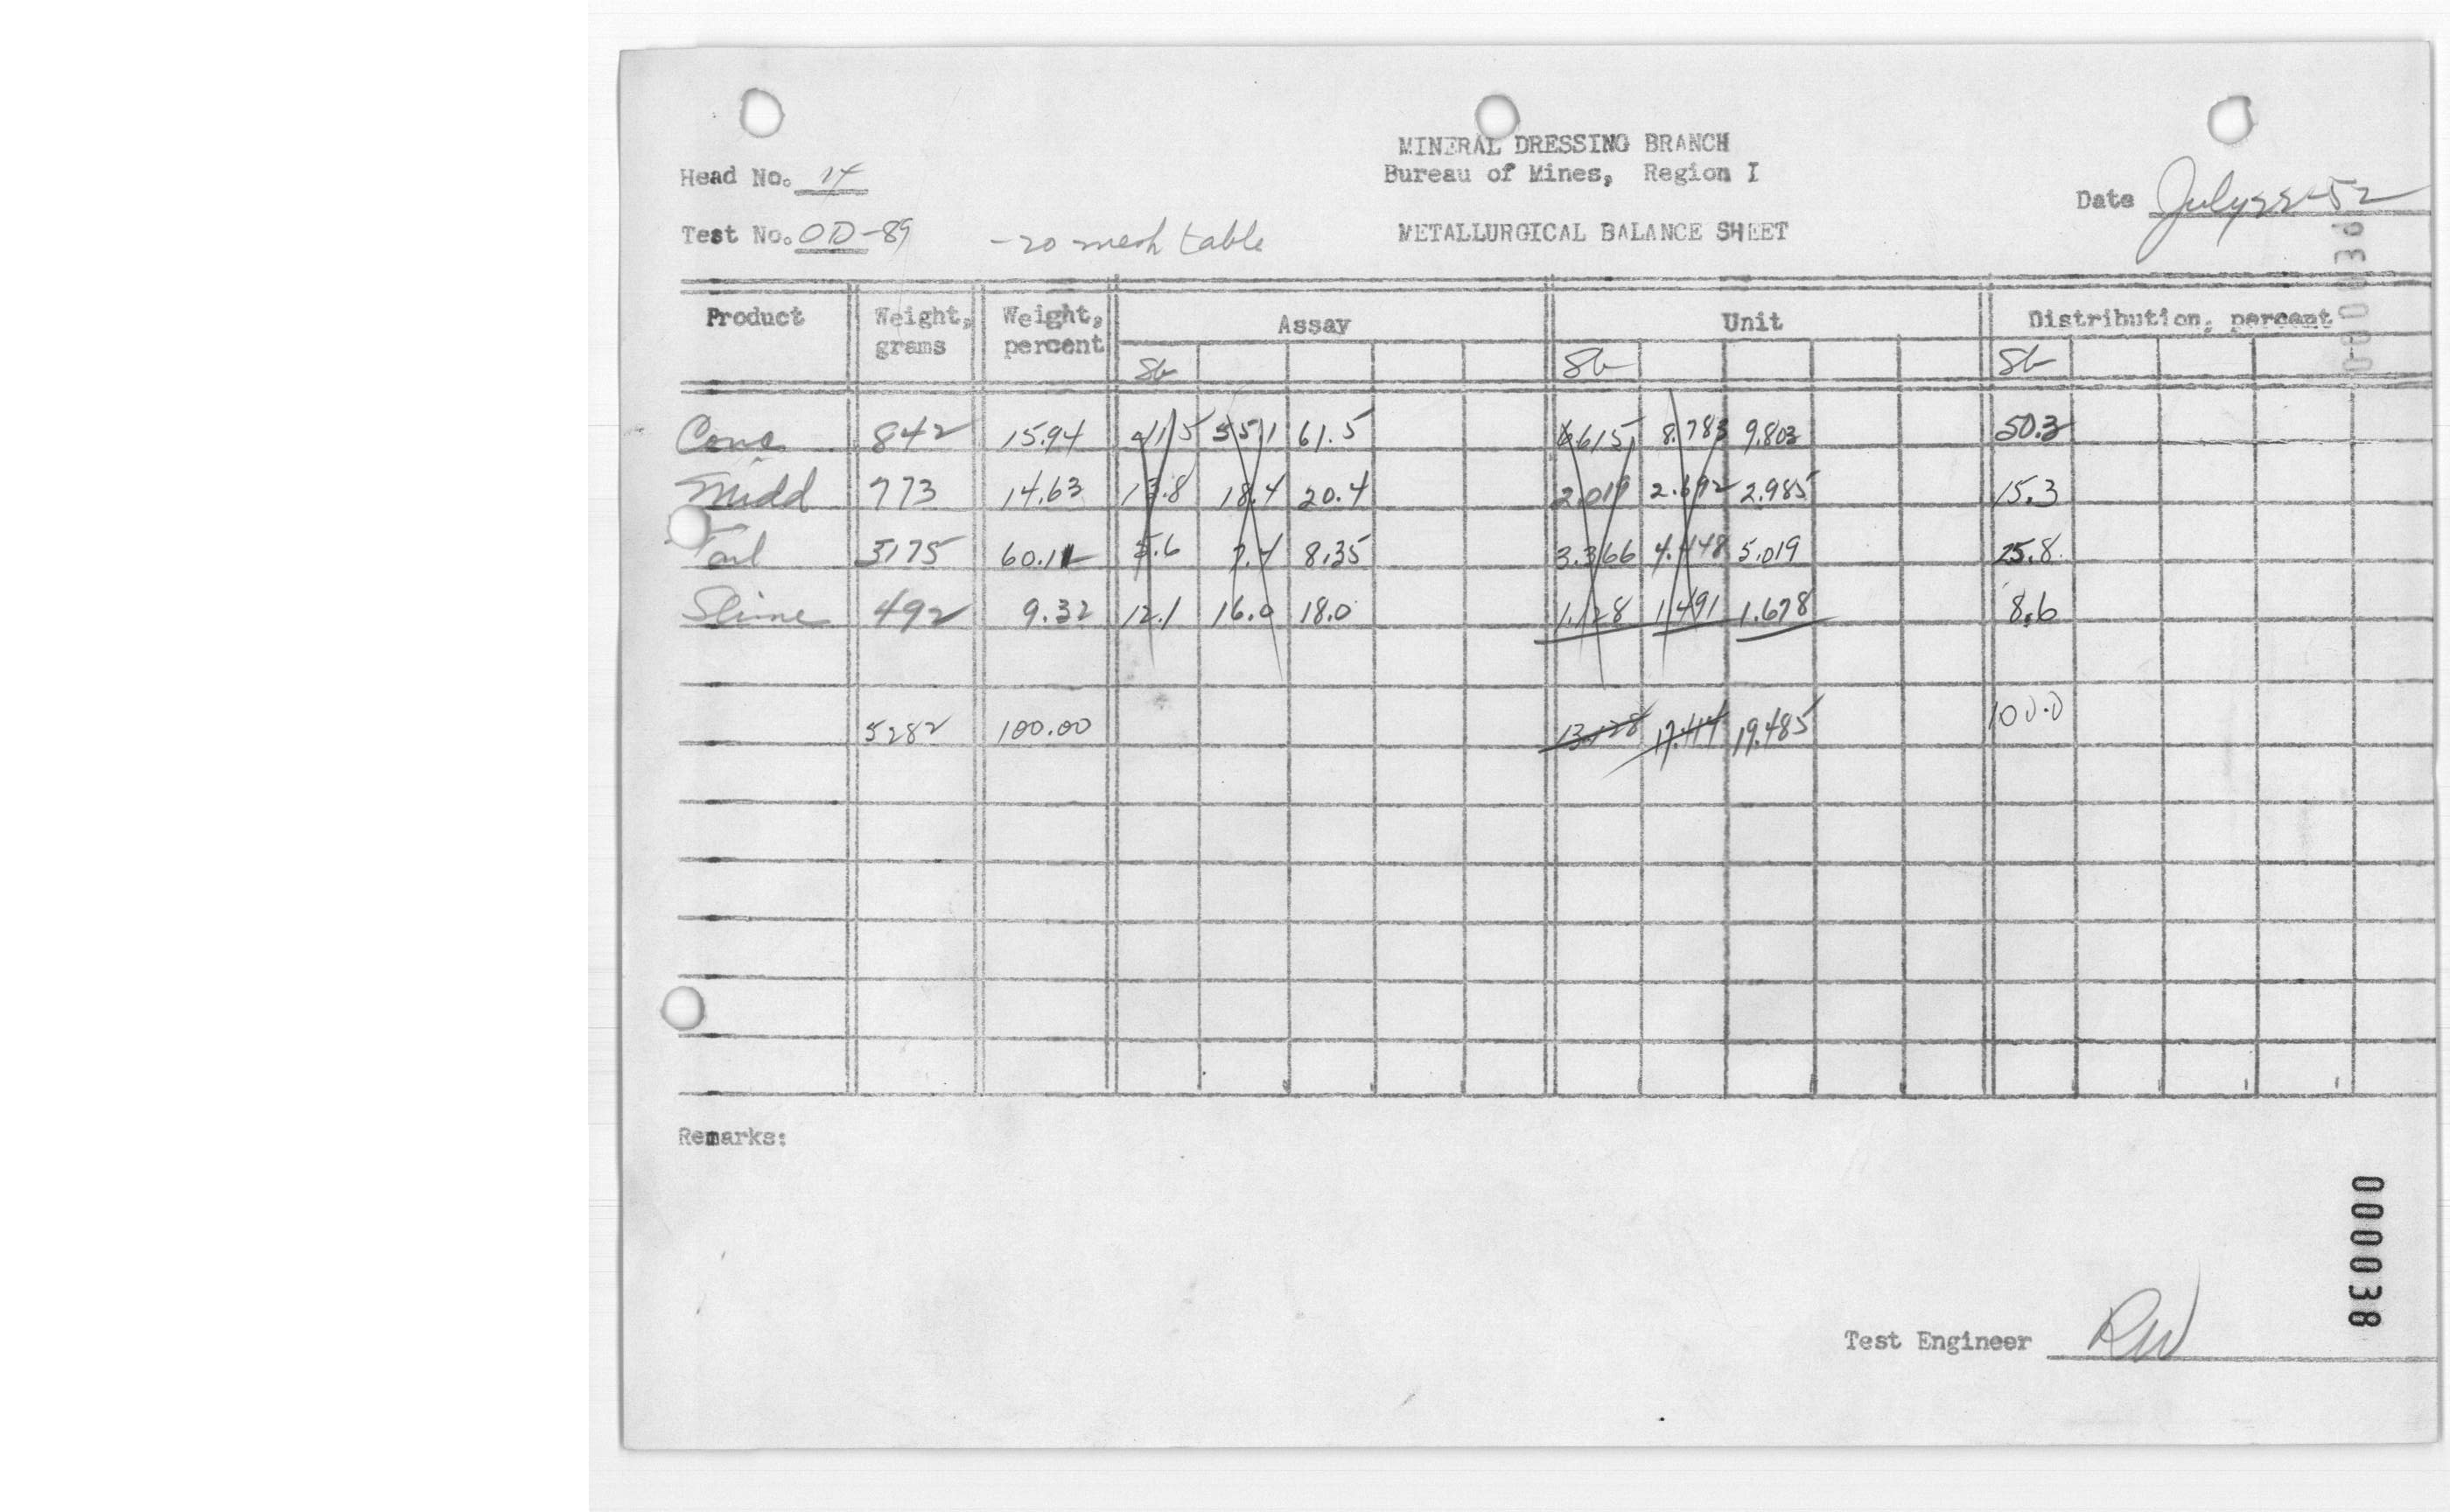 MINERAL DRESSING BRANCH
Head No. 14 Bureau of Mines, Region I
Date July 22-52
Test No. OD-89 -20 mesh table METALLURGICAL BALANCE SHEET
000036
Product Weight, grams Weight, percent Assay Unit Distribution, percent
Sb Sb Sb
Conc 842 15.94 41.5 55.1 61.5 6.615 8.783 9.803 50.3
Midd 773 14.63 13.8 18.4 20.4 2.019 2.692 2.985 15.3
Tail 3175 60.11 5.6 7.4 8.35 3.366 4.448 5.019 25.8
Slime 492 9.32 12.1 16.0 18.0 1.128 1.491 1.678 8.6
5282 100.00 13.128 17.414 19.485 100.0
Remarks:
000038
Test Engineer RW